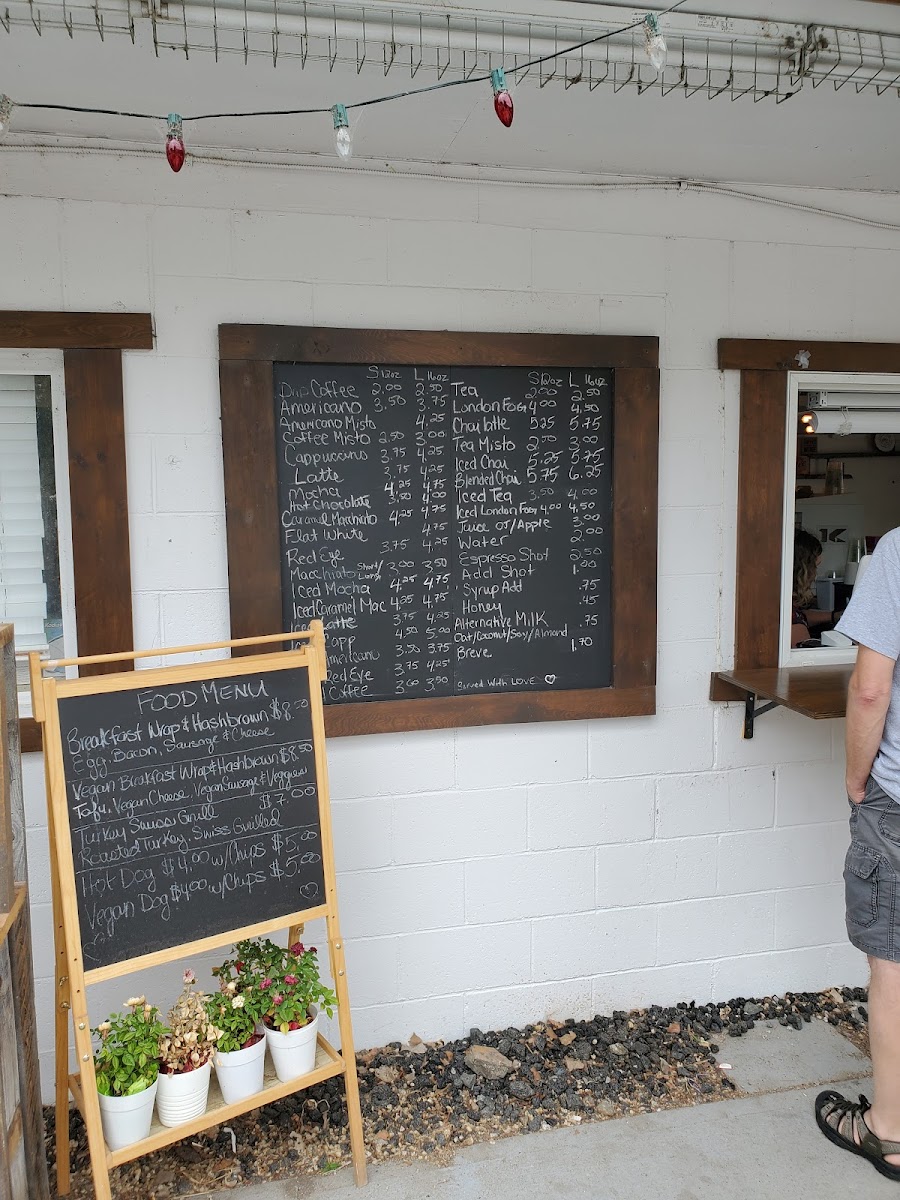 S 12oz L 16oz
Drip Coffee 2.00 2.50
Americano 3.50 3.75
Americano Misto 4.25
Coffee Misto 2.50 3.00
Cappuccino 3.75 4.25
Latte 3.75 4.25
Mocha 4.25 4.75
Hot Chocolate 3.50 4.00
Caramel Macchiato 4.25 4.75
Flat White 4.75
Red Eye 3.75 4.25
Macchiato Short/Long 3.00 3.50
Iced Mocha 4.25 4.75
Iced Caramel Mac 4.25 4.75
Latte 3.75 4.25
4.50 5.00
Americano 3.50 3.75
Red Eye 3.75 4.25
Coffee 3.00 3.50
S 12oz L 16oz
Tea 2.00 2.50
London Fog 4.00 4.50
Chai Latte 5.25 5.75
Tea Misto 2.50 3.00
Iced Chai 5.25 5.75
Blended Chai 5.75 6.25
Iced Tea 3.50 4.00
Iced London Fog 4.00 4.50
Juice or/Apple 3.00
Water 2.00
Espresso Shot 2.50
Add Shot 1.00
Syrup Add .75
Honey .45
Alternative Milk .75
Oat/Coconut/Soy/Almond
Breve 1.70
Served With LOVE
FOOD MENU
Breakfast Wrap & Hashbrown $8.50
Egg, Bacon, Sausage & Cheese
Vegan Breakfast Wrap & Hashbrown $8.50
Tofu, Vegan Cheese, Vegan Sausage & Veggies
Turkey Swiss Grill $7.00
Roasted Turkey, Swiss Grilled
Hot Dog $4.00 w/Chips $5.00
Vegan Dog $4.00 w/Chips $5.00